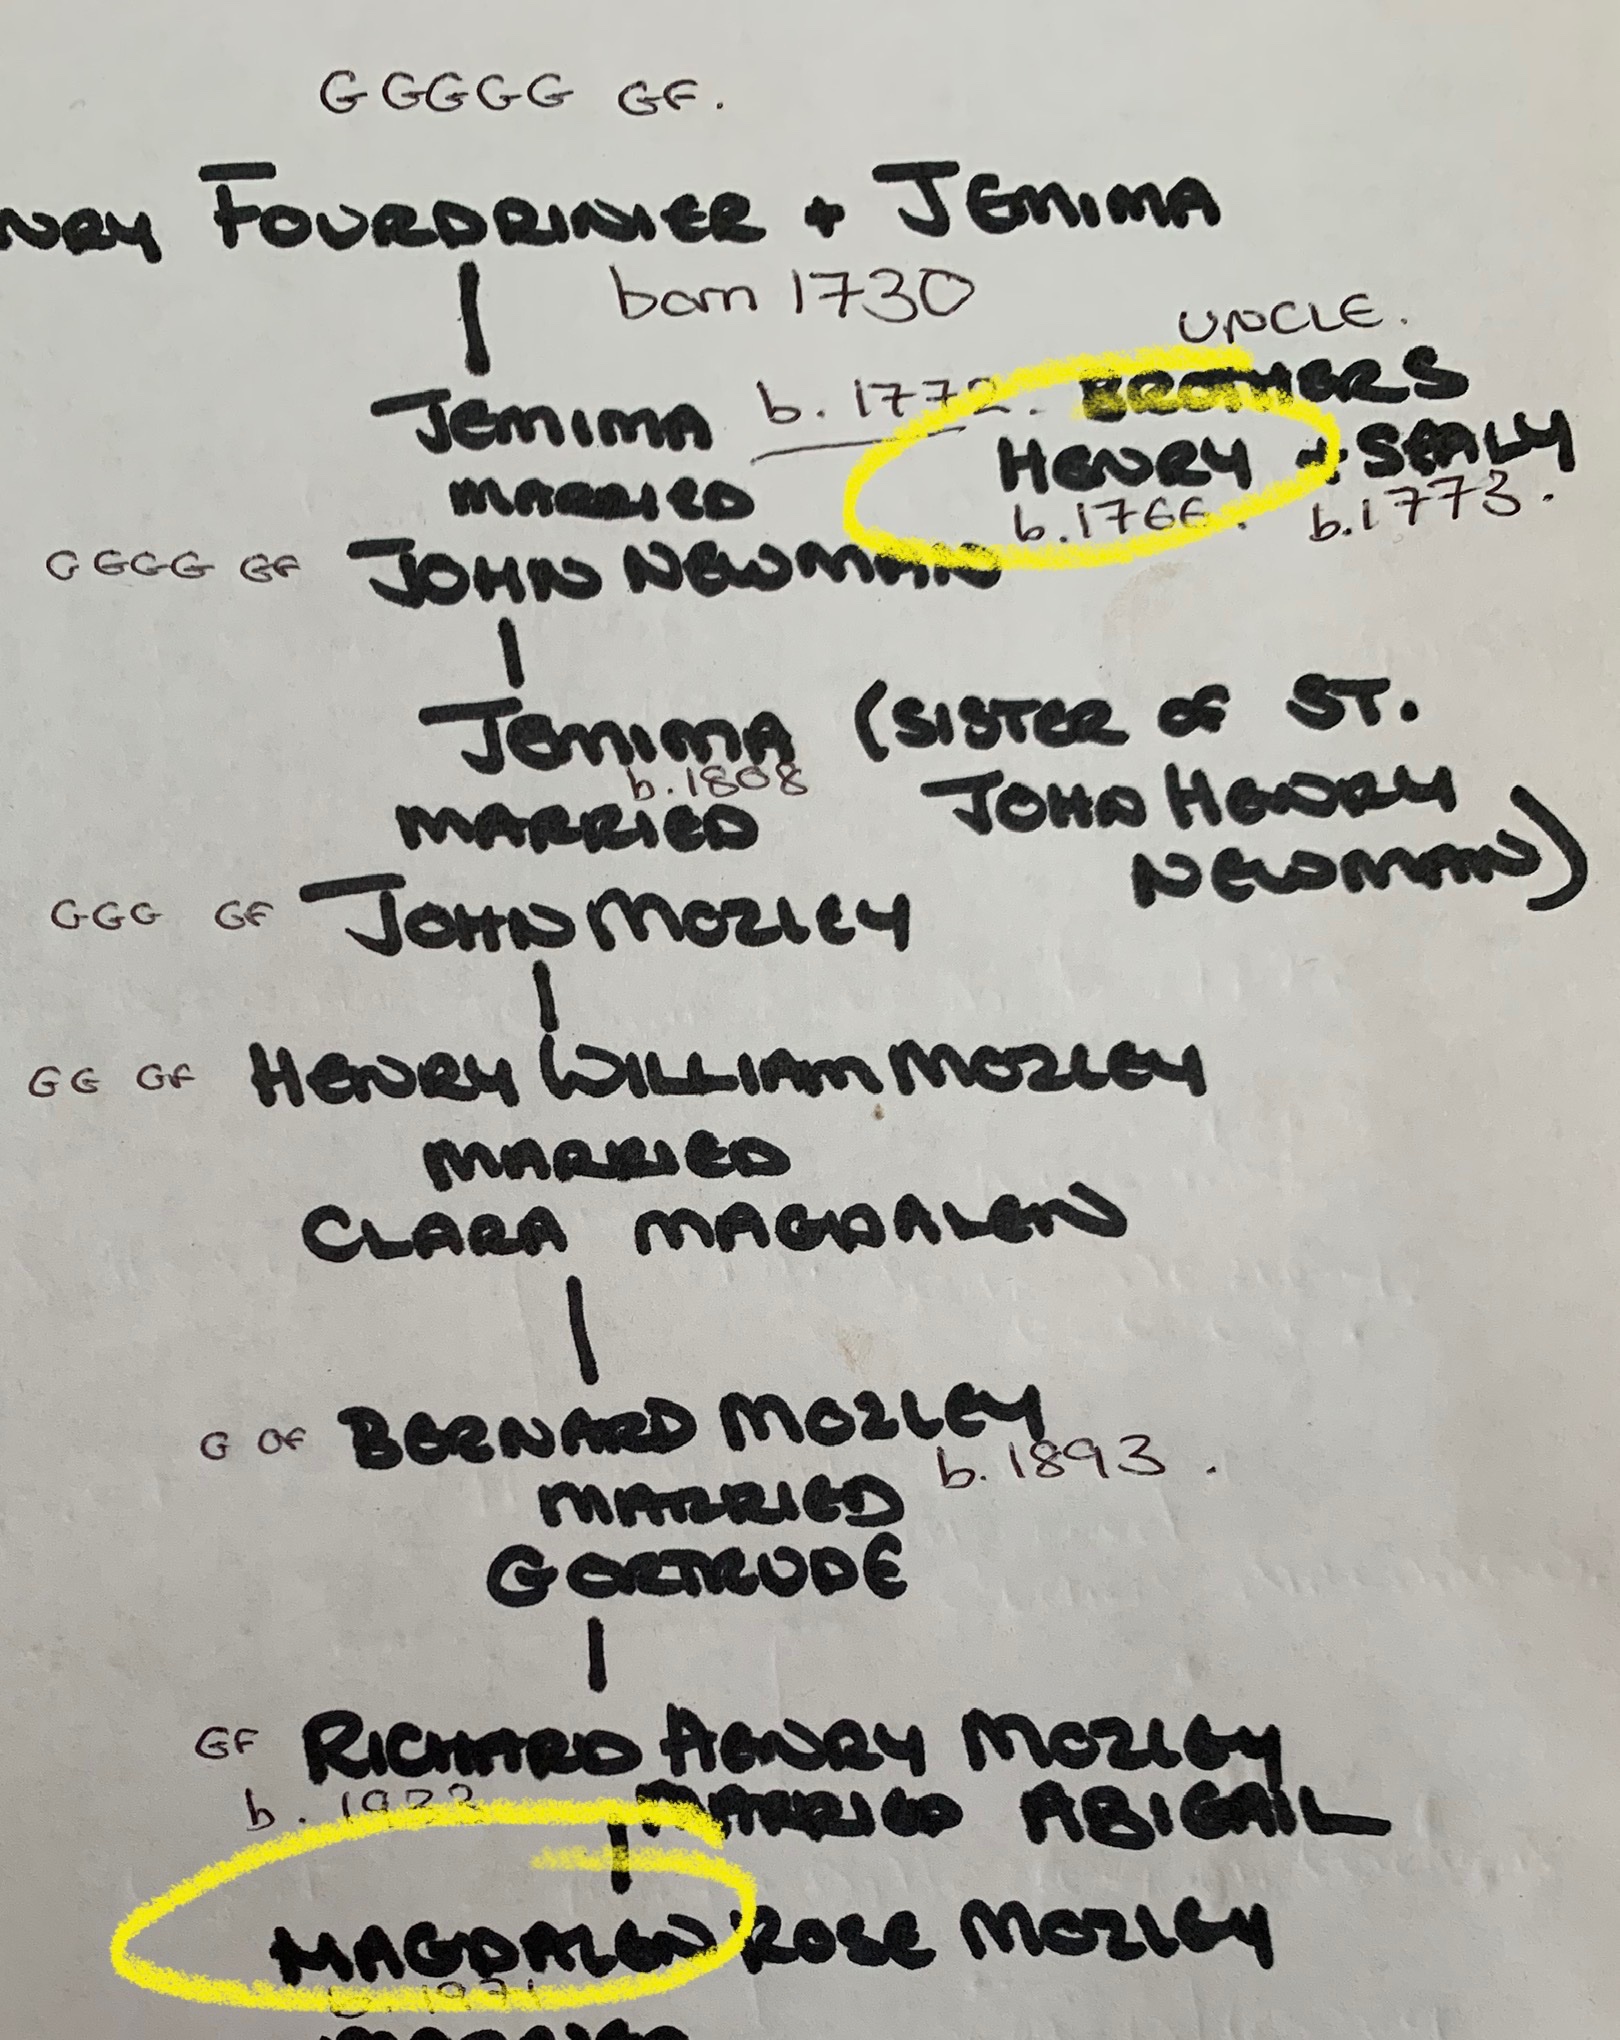 GGGGG GF.
NRY FOURDRINIER + JEMIMA
born 1730
UNCLE.
JEMIMA b. 1772. BROTHERS
MARRIED HENRY + SEALY
b.1766. b.1773.
GGGG GF JOHN NEWMAN
JEMIMA (SISTER OF ST.
b.1808 JOHN HENRY
MARRIED NEWMAN)
GGG GF JOHN MOZLEY
GG GF HENRY WILLIAM MOZLEY
MARRIED
CLARA MAGDALEN
G GF BERNARD MOZLEY
b. 1893.
MARRIED
GERTRUDE
GF RICHARD HENRY MOZLEY
b. MARRIED ABIGAIL
MAGDALEN ROSE MOZLEY
b. 1971
MARRIED